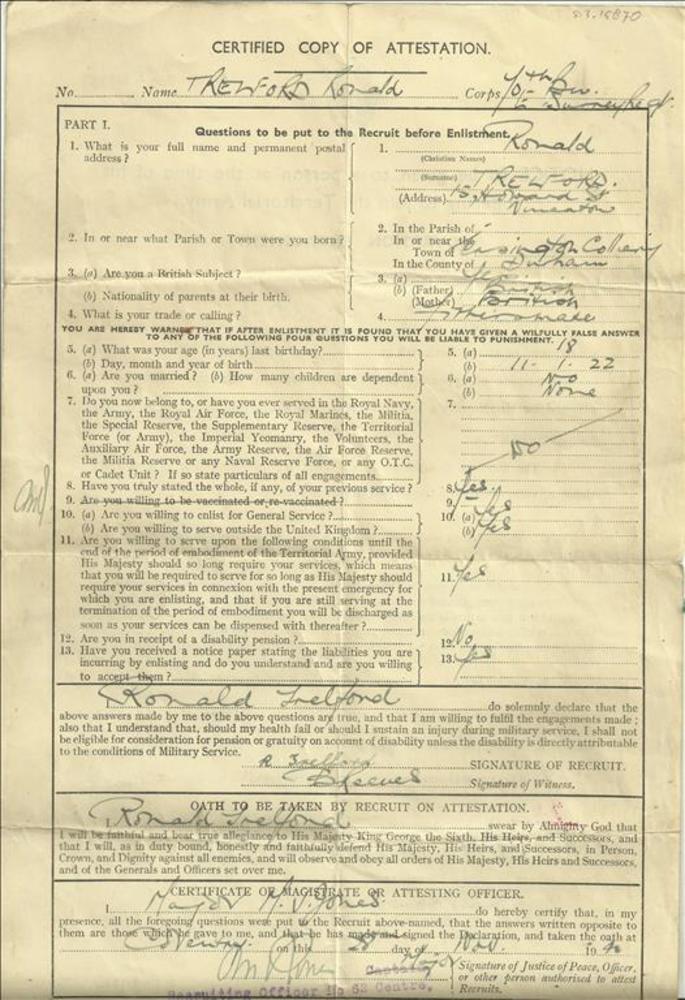 CERTIFIED COPY OF ATTESTATION.
No. Name TRELFORD Ronald Corps 70th Bn.
E. Surrey Regt.
PART I.
Questions to be put to the Recruit before Enlistment.
1. What is your full name and permanent postal address ?
1. Ronald
(Christian Names)
(Surname) TRELFORD.
(Address) 15, Howard St
Nuneaton
2. In or near what Parish or Town were you born ?
2. In the Parish of
In or near the
Town of Easington Colliery
In the County of Durham
3. (a) Are you a British Subject ?
3. (a) Yes
(b) Nationality of parents at their birth.
(b) (Father) British
(Mother) British
4. What is your trade or calling ?
4. Fitters mate
YOU ARE HEREBY WARNED THAT IF AFTER ENLISTMENT IT IS FOUND THAT YOU HAVE GIVEN A WILFULLY FALSE ANSWER
TO ANY OF THE FOLLOWING FOUR QUESTIONS YOU WILL BE LIABLE TO PUNISHMENT.
5. (a) What was your age (in years) last birthday?
5. (a) 18
(b) Day, month and year of birth
(b) 11 - 1 - 22
6. (a) Are you married ? (b) How many children are dependent
upon you ?
6. (a) No
(b) None
7. Do you now belong to, or have you ever served in the Royal Navy,
the Army, the Royal Air Force, the Royal Marines, the Militia,
the Special Reserve, the Supplementary Reserve, the Territorial
Force (or Army), the Imperial Yeomanry, the Volunteers, the
Auxiliary Air Force, the Army Reserve, the Air Force Reserve,
the Militia Reserve or any Naval Reserve Force, or any O.T.C.
or Cadet Unit ? If so state particulars of all engagements
7. NO
8. Have you truly stated the whole, if any, of your previous service ?
8. Yes
9. Are you willing to be vaccinated or re-vaccinated ?
9.
10. (a) Are you willing to enlist for General Service ?
10. (a) Yes
(b) Are you willing to serve outside the United Kingdom ?
(b) Yes
11. Are you willing to serve upon the following conditions until the
end of the period of embodiment of the Territorial Army, provided
His Majesty should so long require your services, which means
that you will be required to serve for so long as His Majesty should
require your services in connexion with the present emergency for
which you are enlisting, and that if you are still serving at the
termination of the period of embodiment you will be discharged as
soon as your services can be dispensed with thereafter ?
11. Yes
12. Are you in receipt of a disability pension ?
12. No
13. Have you received a notice paper stating the liabilities you are
incurring by enlisting and do you understand and are you willing
to accept them ?
13. Yes
Ronald Trelford do solemnly declare that the
above answers made by me to the above questions are true, and that I am willing to fulfil the engagements made ;
also that I understand that, should my health fail or should I sustain an injury during military service, I shall not
be eligible for consideration for pension or gratuity on account of disability unless the disability is directly attributable
to the conditions of Military Service.
R Trelford SIGNATURE OF RECRUIT.
Signature of Witness.
OATH TO BE TAKEN BY RECRUIT ON ATTESTATION.
Ronald Trelford swear by Almighty God that
I will be faithful and bear true allegiance to His Majesty King George the Sixth, His Heirs, and Successors, and
that I will, as in duty bound, honestly and faithfully defend His Majesty, His Heirs, and Successors, in Person,
Crown, and Dignity against all enemies, and will observe and obey all orders of His Majesty, His Heirs and Successors,
and of the Generals and Officers set over me.
CERTIFICATE OF MAGISTRATE OR ATTESTING OFFICER.
I, Major Jones do hereby certify that, in my
presence, all the foregoing questions were put to the Recruit above-named, that the answers written opposite to
them are those which he gave to me, and that he has made and signed the Declaration, and taken the oath at
Coventry on this 28 day of Nov 19 40
Signature of Justice of Peace, Officer,
or other person authorised to attest
Recruits.
Recruiting Officer No 62 Centre.